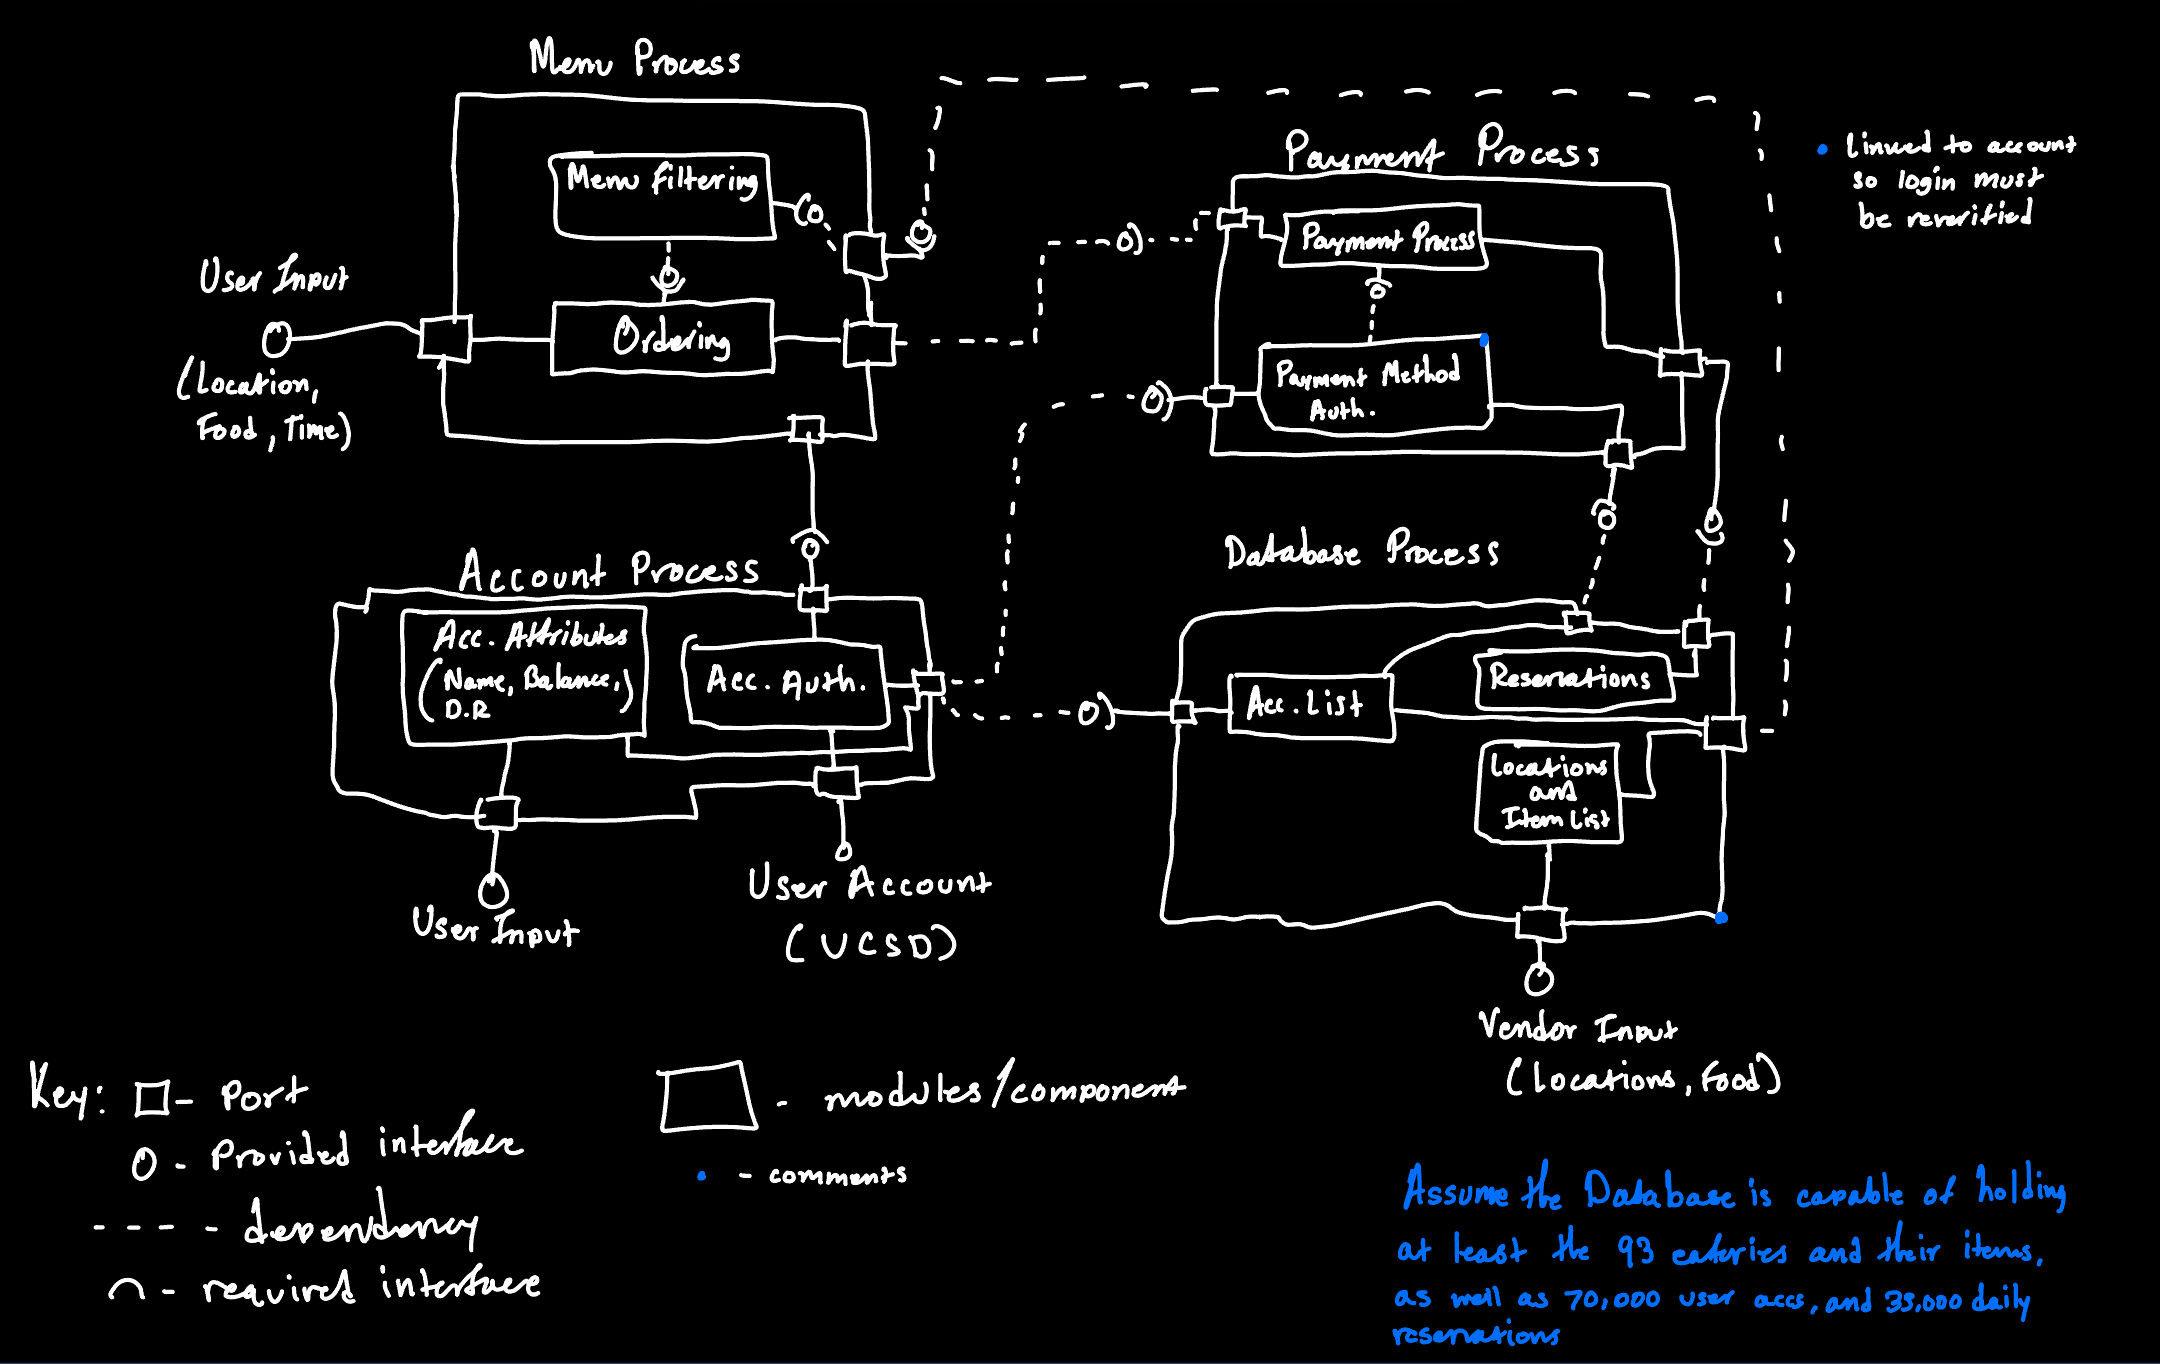 Menu Process
Menu filtering
Ordering
User Input
(Location,
Food, Time)
Payment Process
Payment Process
Payment Method
Auth.
• Linked to account
so login must
be reverified
Account Process
Acc. Attributes
(Name, Balance,)
D.R
Acc. Auth.
User Input
User Account
(UCSD)
Database Process
Acc. List
Reservations
Locations
and
Item List
Vendor Input
(Locations, Food)
Key: □ - Port
O - Provided interface
---- - dependency
⌒ - required interface
- modules/component
• - comments
Assume the Database is capable of holding
at least the 93 eateries and their items,
as well as 70,000 user accs, and 35,000 daily
reservations